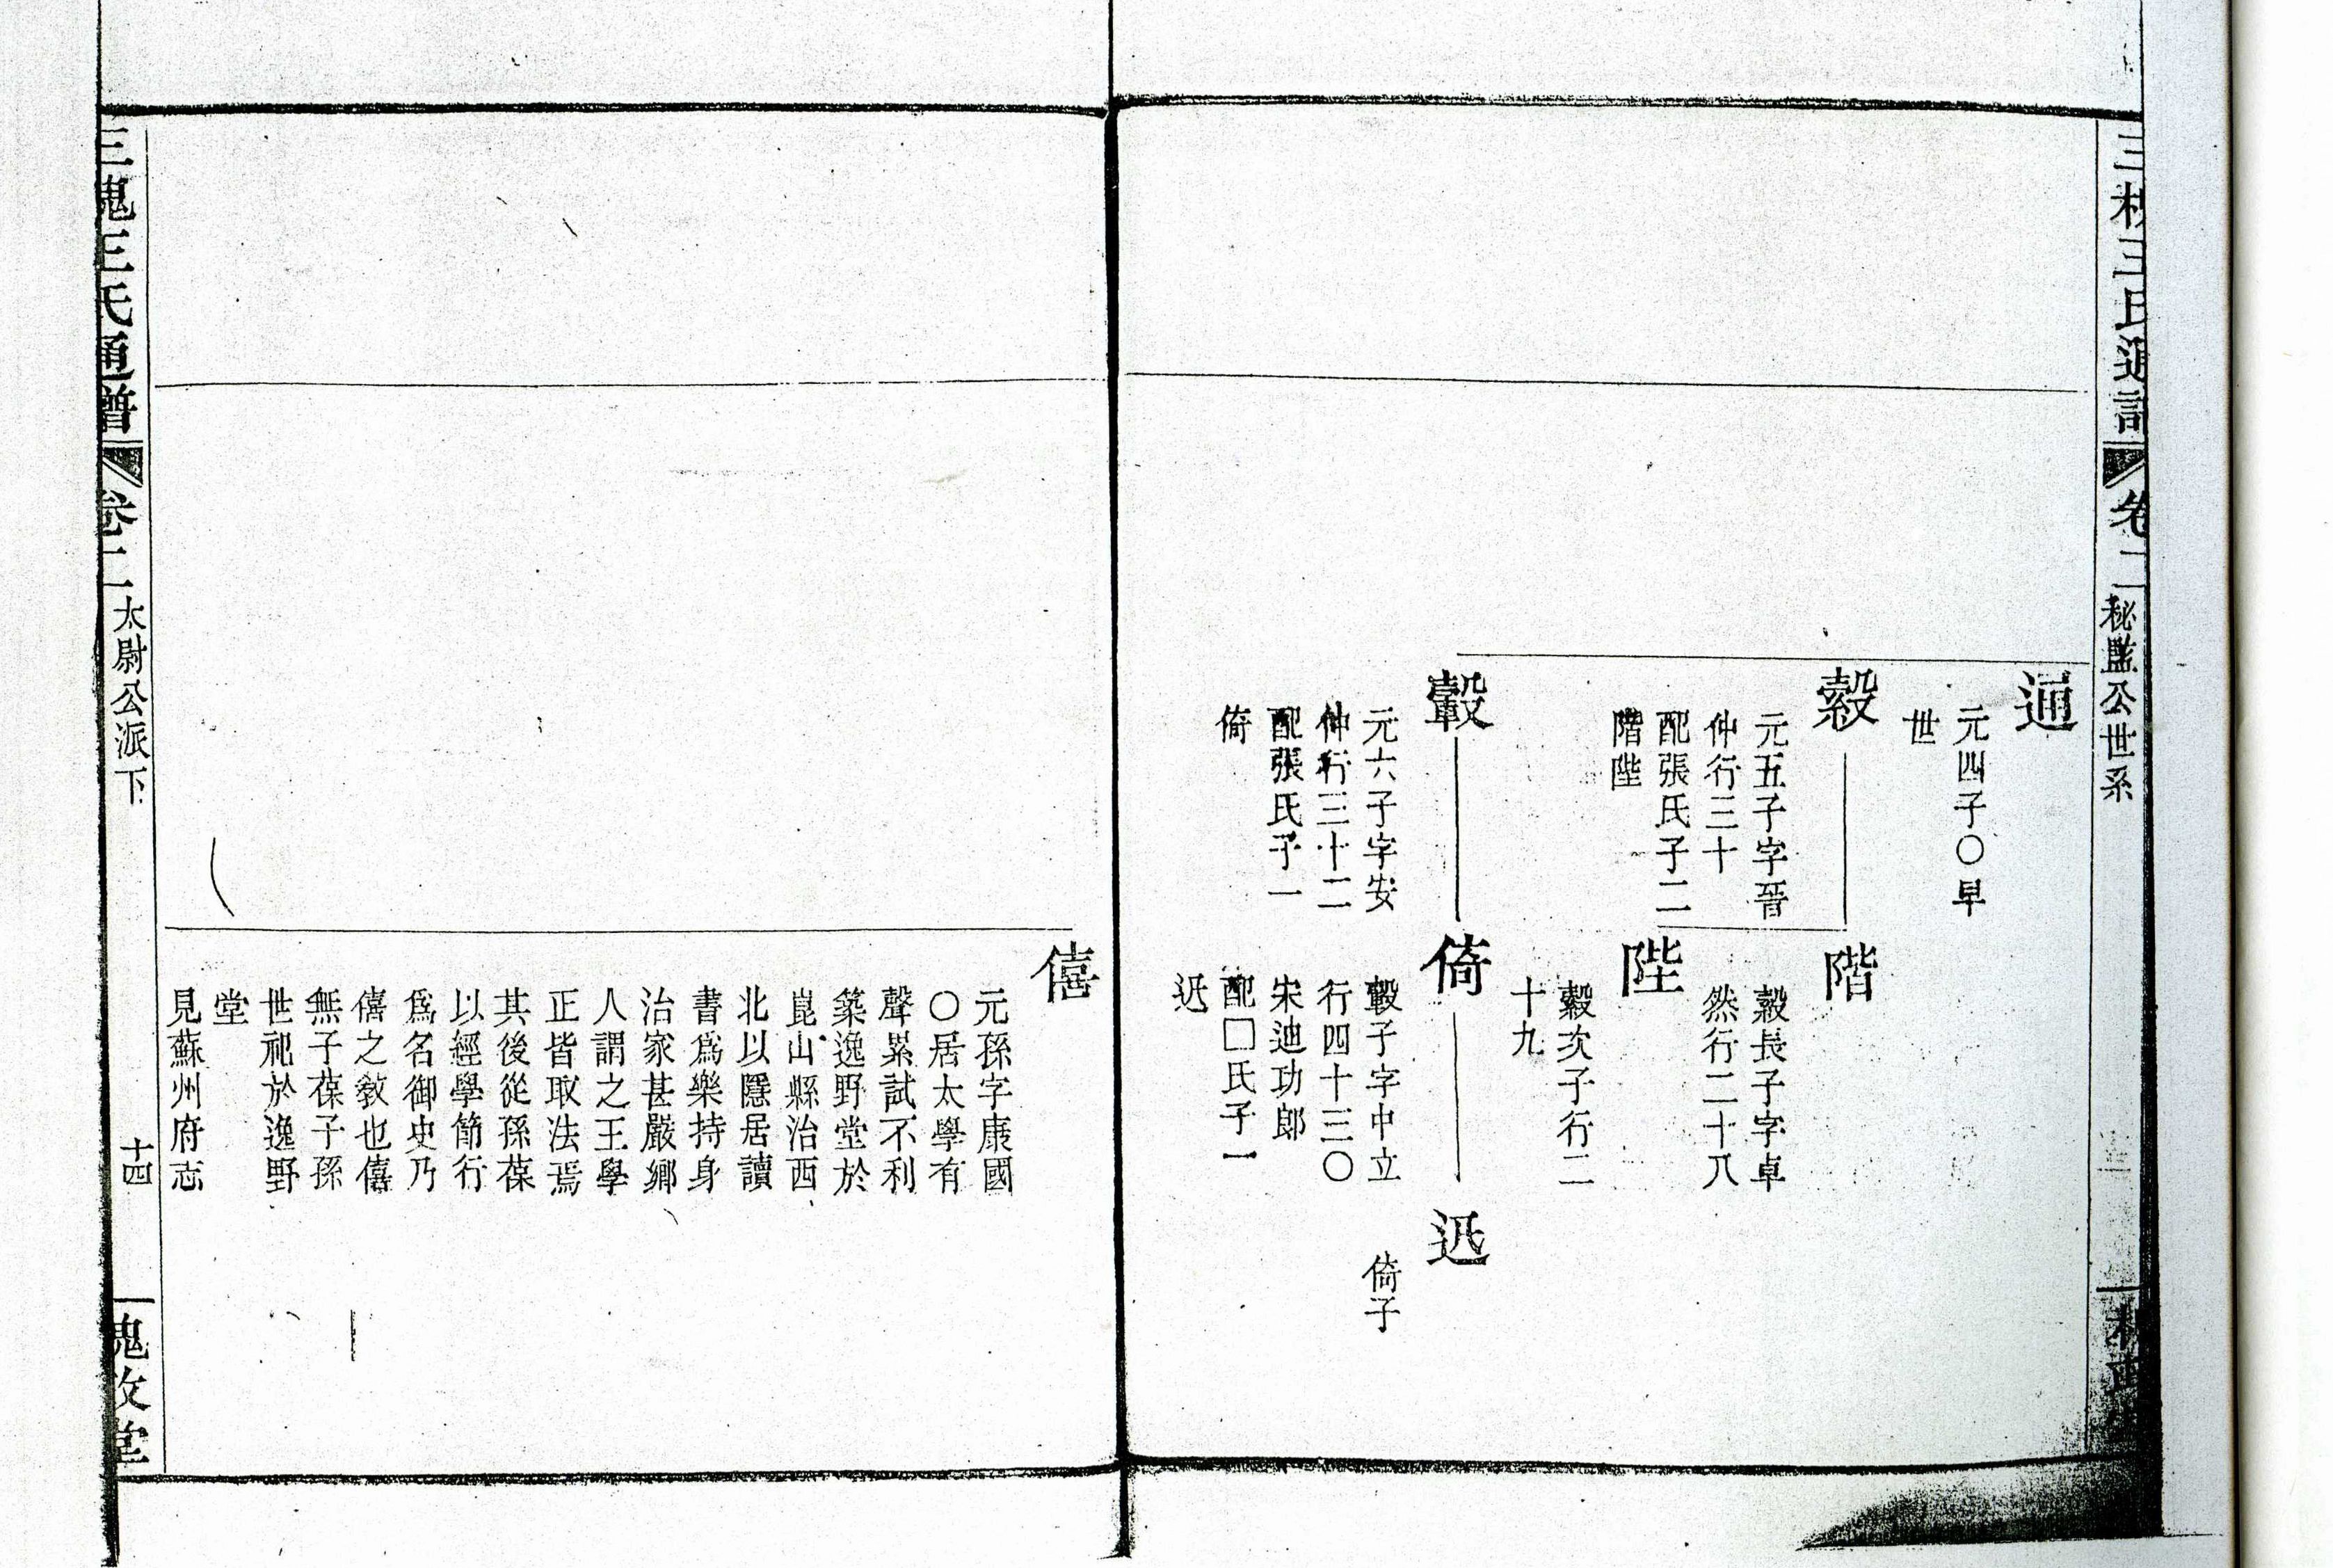 三槐王氏通譜
卷二
秘監公世系
通
元四子〇早
世
縠
元五子字晉
仲行三十
配張氏子二
階陛
轂
元六子字安
仲行三十二
配張氏子一
倚
階
縠長子字卓
然行二十八
陛
縠次子行二
十九
倚
轂子字中立
行四十三〇
宋迪功郎
配□氏子一
迟
迟
倚子
僖
元孫字康國
〇居太學有
聲累試不利
築逸野堂於
崑山縣治西
北以隱居讀
書爲樂持身
治家甚嚴鄉
人謂之王學
正皆取法焉
其後從孫葆
以經學簡行
爲名御史乃
僖之敎也僖
無子葆子孫
世祀於逸野
堂
見蘇州府志
三槐王氏通譜
卷二
太尉公派下
十四
槐政堂